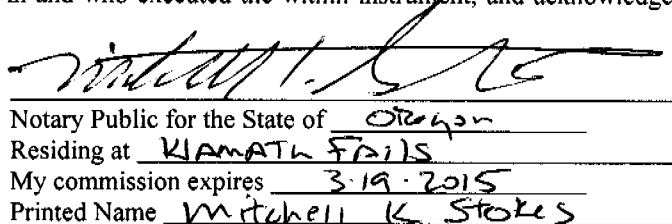 in and who executed the within instrument, and acknowledge
Notary Public for the State of Oregon
Residing at KlamATh FAlls
My commission expires 3·19·2015
Printed Name Mitchell K Stokes